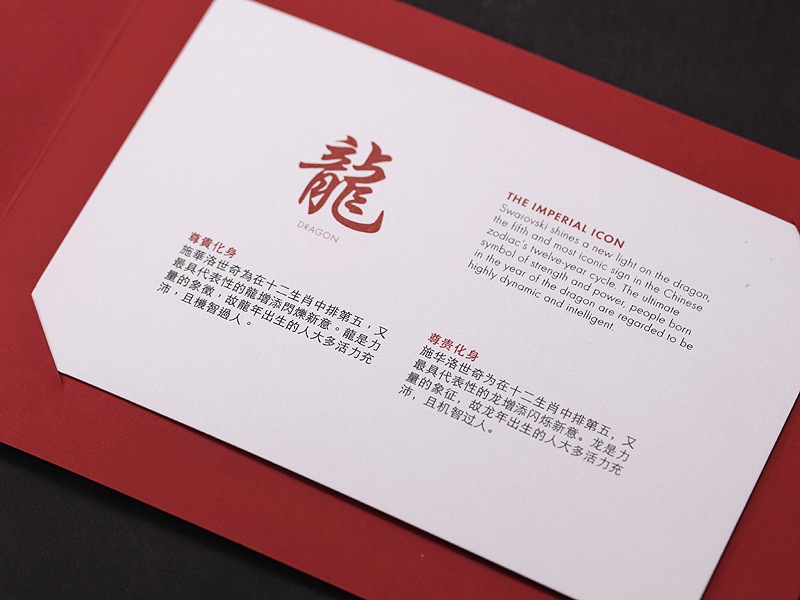 龍
DRAGON
尊貴化身
施華洛世奇為在十二生肖中排第五，又
最具代表性的龍增添閃爍新意。龍是力
量的象徵，故龍年出生的人大多活力充
沛，且機智過人。
THE IMPERIAL ICON
Swarovski shines a new light on the dragon,
the fifth and most iconic sign in the Chinese
zodiac's twelve-year cycle. The ultimate
symbol of strength and power, people born
in the year of the dragon are regarded to be
highly dynamic and intelligent.
尊贵化身
施华洛世奇为在十二生肖中排第五，又
最具代表性的龙增添闪烁新意。龙是力
量的象征，故龙年出生的人大多活力充
沛，且机智过人。